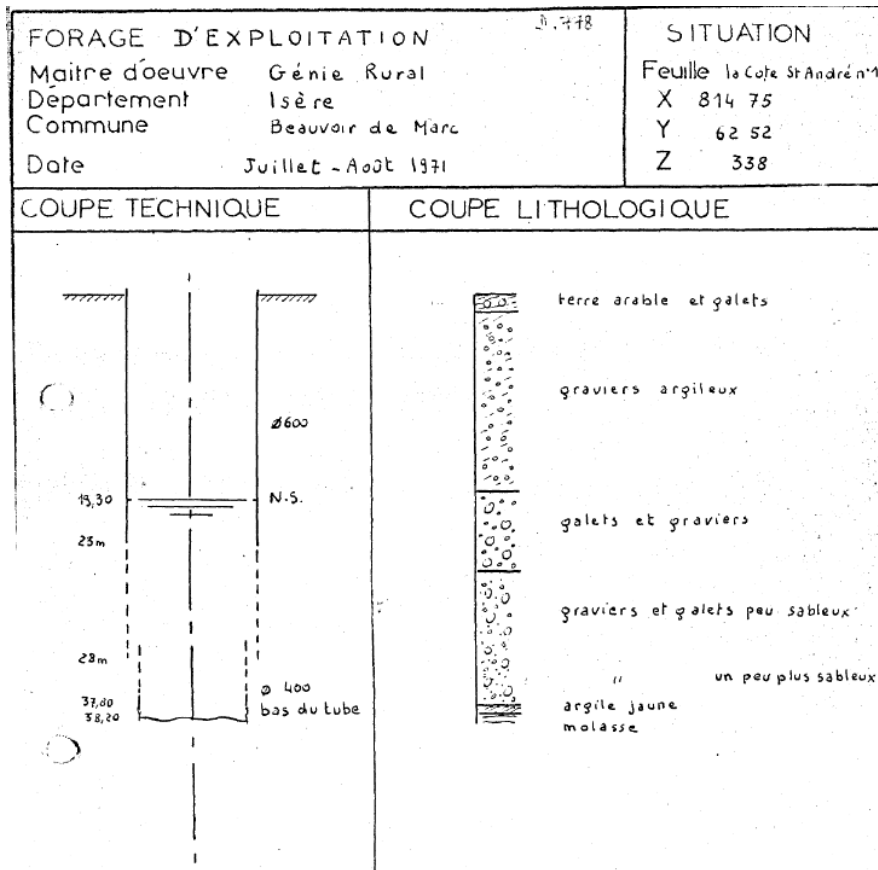 FORAGE D'EXPLOITATION
Maitre d'oeuvre Génie Rural
Département Isère
Commune Beauvoir de Marc
Date Juillet - Août 1971
SITUATION
Feuille la Cote St André n°1
X 814 75
Y 62 52
Z 338
COUPE TECHNIQUE
COUPE LITHOLOGIQUE
terre arable et galets
graviers argileux
Ø600
N.S.
galets et graviers
graviers et galets peu sableux
28m
" un peu plus sableux
Ø 400
bas du tube
argile jaune
molasse